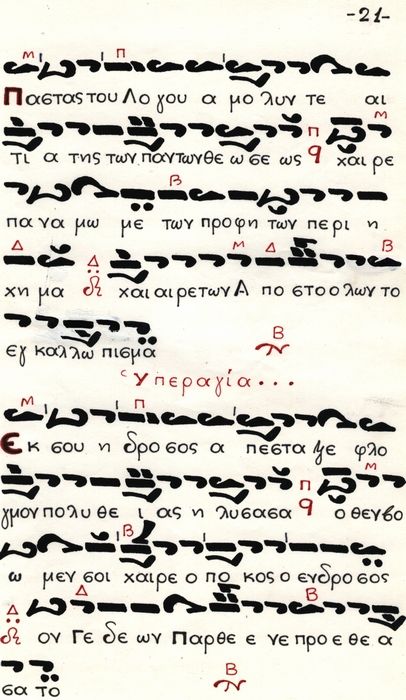 -21-
Μ Π
Παστας του Λο γου α μο λυν τε αι
Π Μ
τι α της των παντων θε ω σε ως q χαι ρε
Β
πα να μω με των προφη των περι η
Δ Δ Μ Δ Β
χη μα δι χαι αι ρε των Α πο στο ο λων το
Β
εγ καλ λω πισμα
Υπεραγία...
Μ Π
Εκ σου η δρο σος α πεστα ξε φλο
Π Μ
γμον πολυ θε ι ας η λυσασα q ο θεν βο
Β
ω μεν σοι χαιρε ο πο κος ο ενδρο σος
Δ Δ Β
δι ον Γε δε ων Παρθε ε νε προ ε θε α
Β
σα το